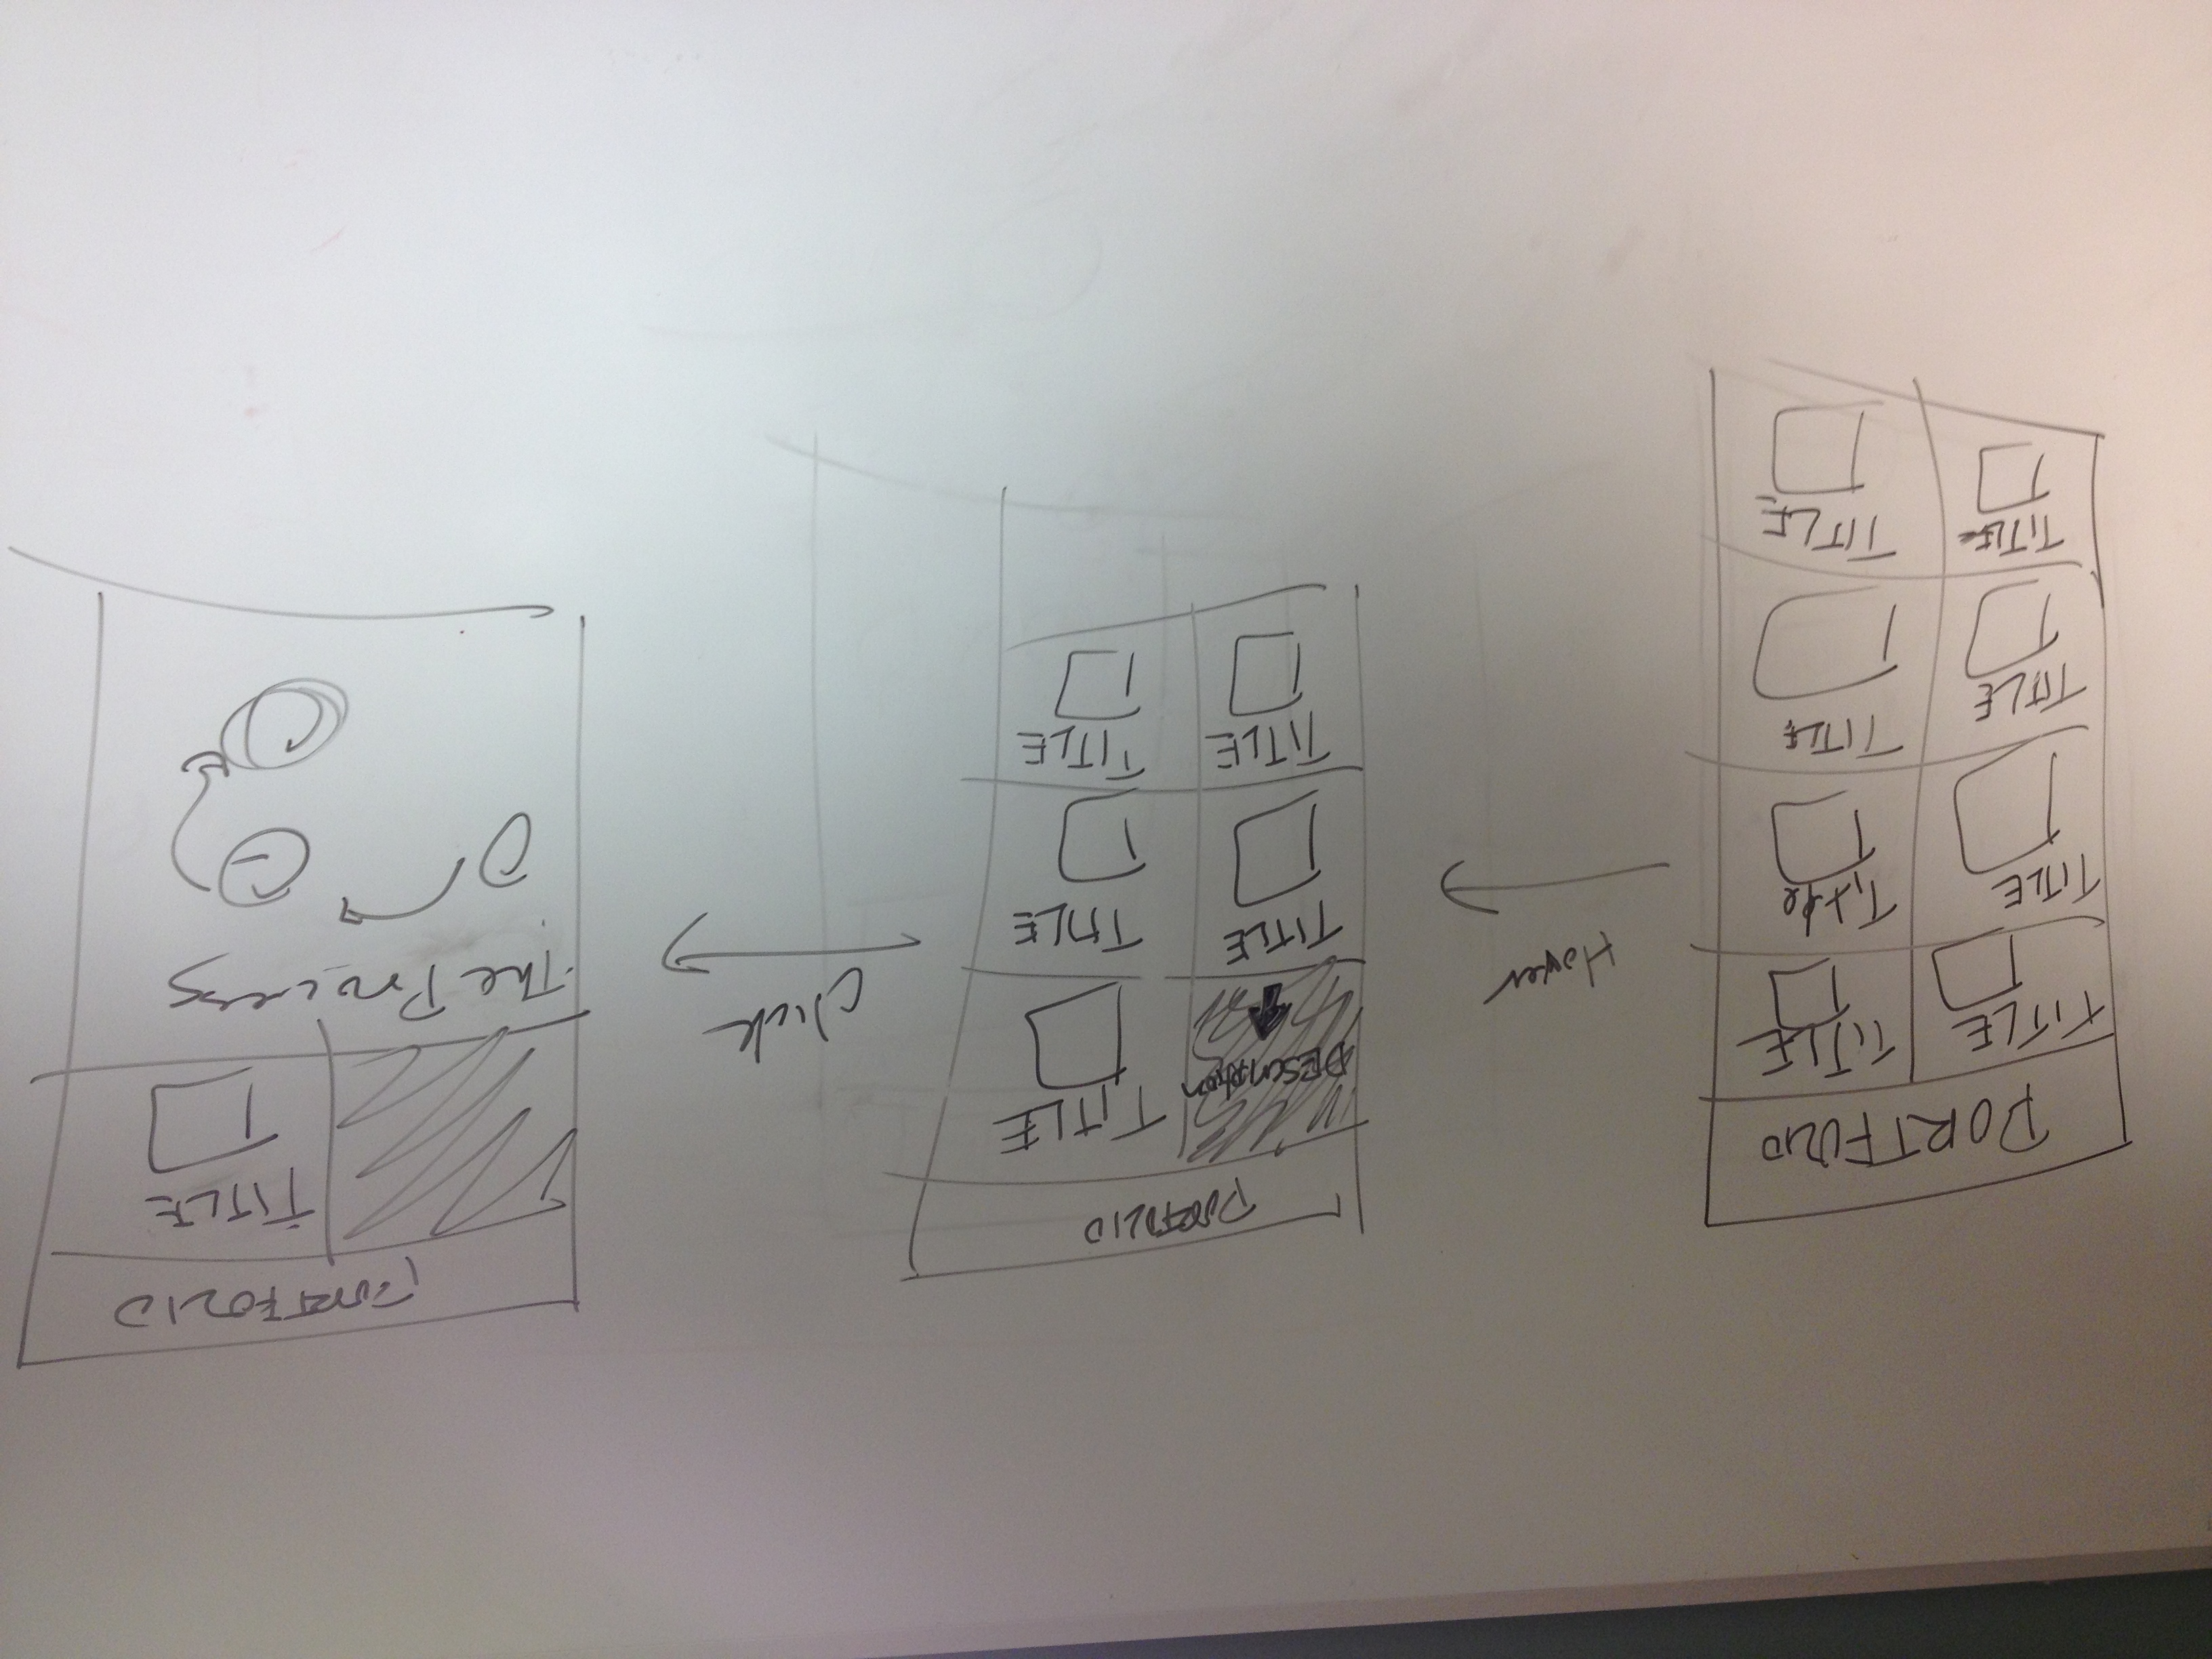 PORTFOLIO
TITLE TITLE
TITLE Title
TITLE TITLE
TITLE TITLE
Hover
PORTFOLIO
DESCRIPTION TITLE
TITLE TITLE
TITLE TITLE
Click
PORTFOLIO
TITLE
The Process